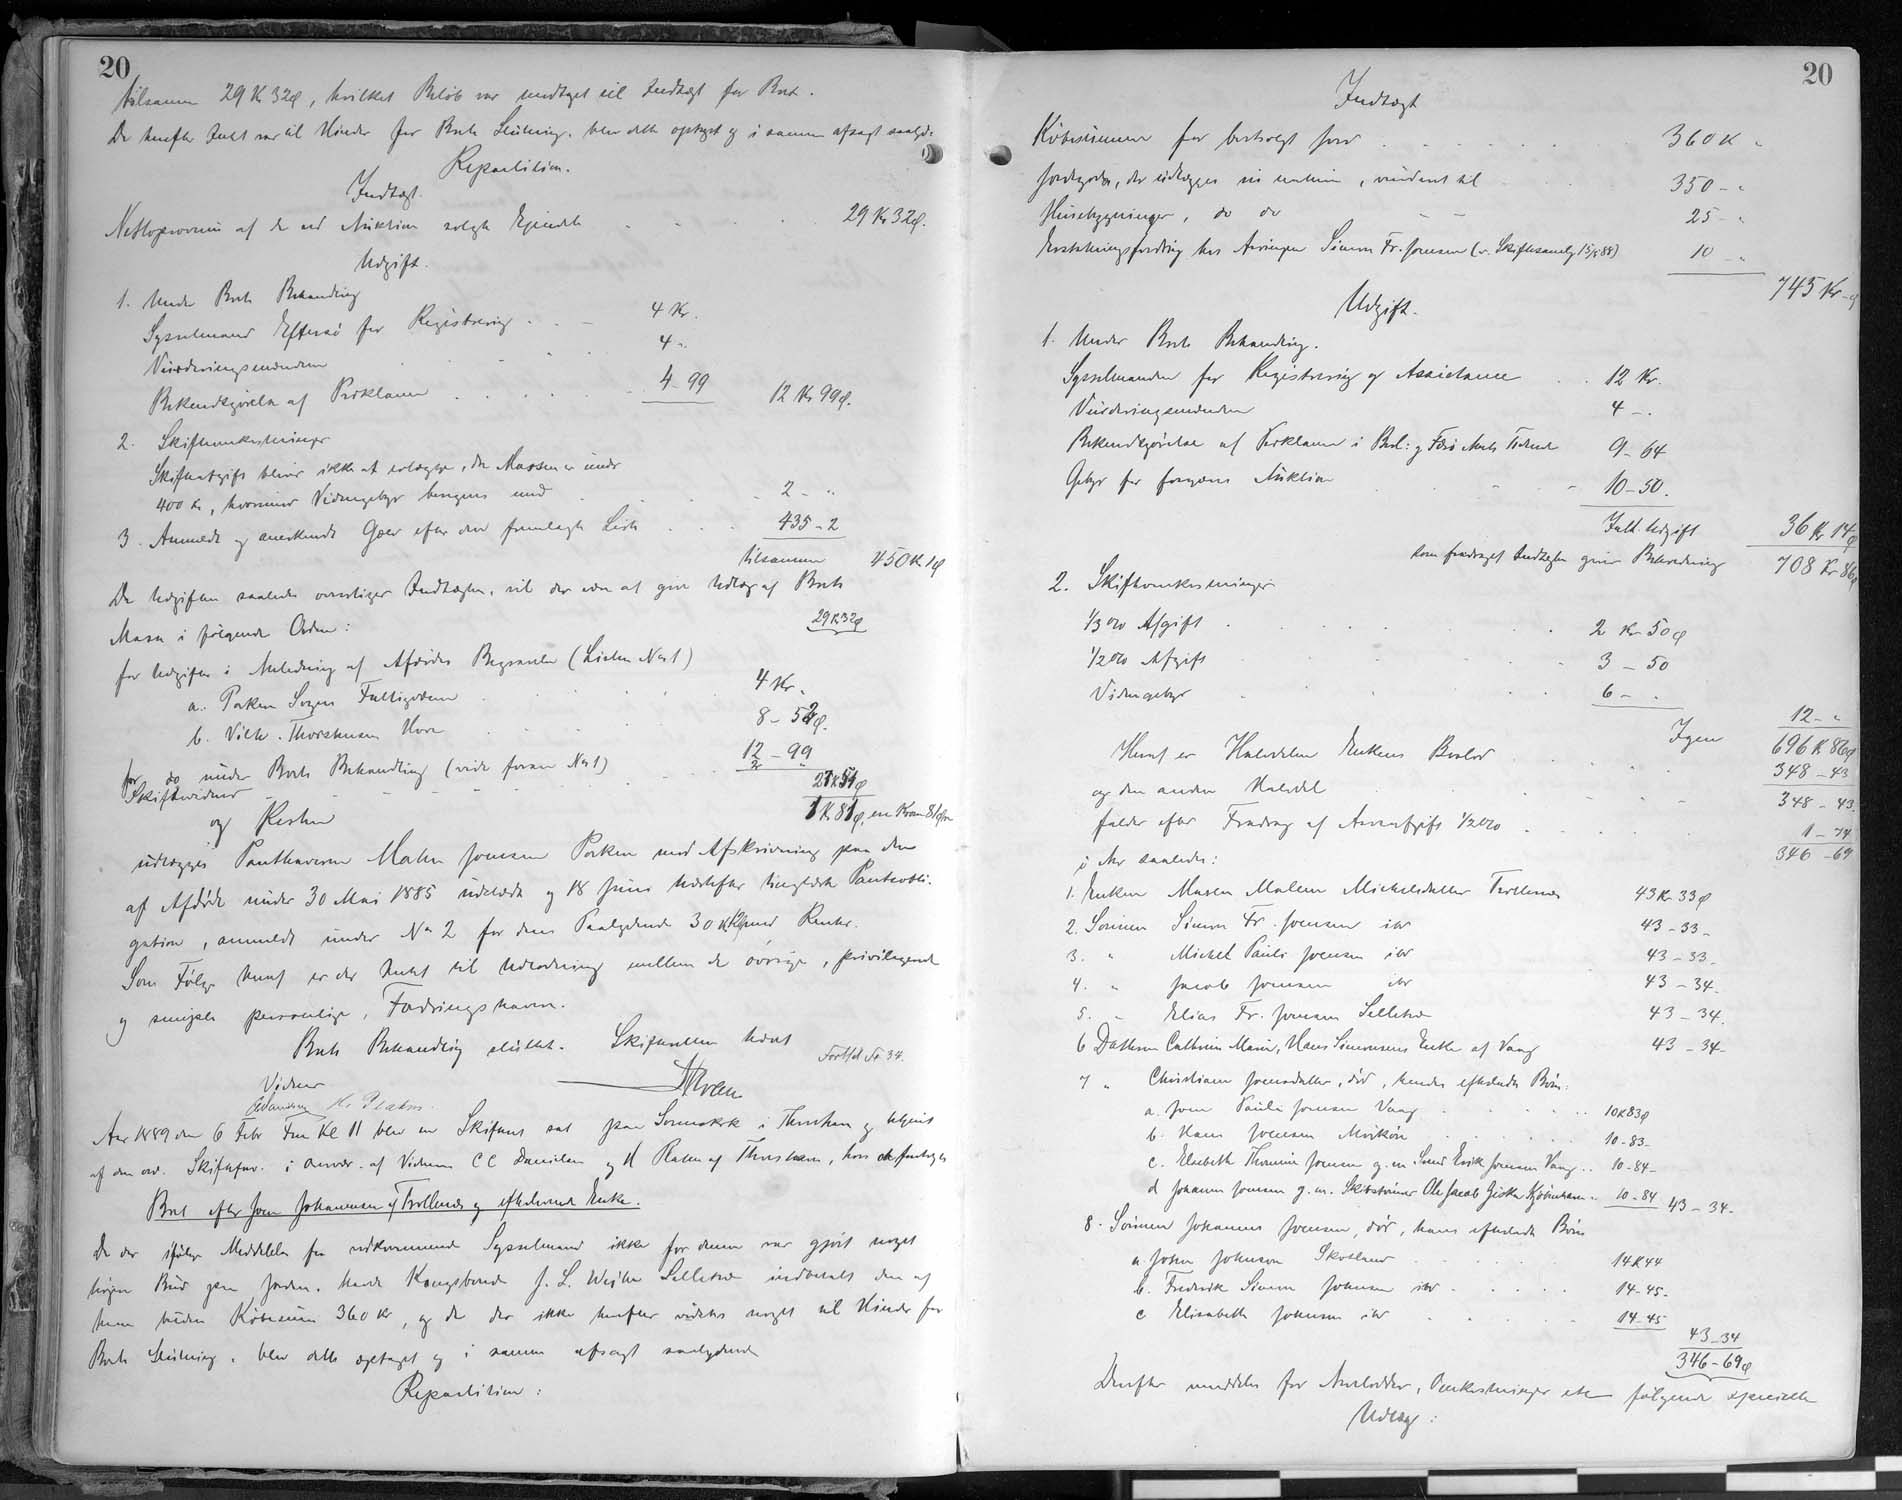 20
tilsammen 29 Kr 32 Ø, hvilket Beløb var indtaget til Indtægt for Boet.
Da herefter Intet var til Hinder for Boets Slutning, blev dette optaget og i samme afsagt saalyd:
Repartition.
Indtægt.
Nettoprovenu af de ved Auktion solgte Ejendele 29 Kr 32 Ø.
Udgift.
1. Under Boets Behandling
Sysselmand Effersø for Registrering 4 Kr.
Vurderingsmændene 4 "
Bekendtgørelse af Proklama 4-99 12 Kr 99 Ø.
2. Skifteomkostninger
Skifteafgift bliver ikke at erlægge, da Massen er under
400 Kr, hvorimod Vidnegebyr beregnes med 2 - "
3. Anmeldt og anerkendt Gæld efter den fremlagte Liste 435 - 2
tilsammen 450 K 1 Ø
Da Udgiften saaledes overstiger Indtægten, vil der være at give Udlæg af Boets
Masse i følgende Orden: 29 K 32 Ø
for Udgifter i Anledning af Afdødes Begravelse (Listen No 1)
a. Porkere Sogns Fattigvæsen 4 Kr.
b. Vilh. Thorsteinsen Hove 8 - 52 Ø.
for do under Boets Behandling (vide foran No 1) 12 - 99
Skiftevidner 2 "
27 K 51 Ø
og Resten 1 K 81 Ø, en Krone 81 Øre
udlægges Panthaveren Malen Joensen Porkere med Afskrivning paa den
af Afdøde under 30 Mai 1885 udstedte og 18 Juni næstefter tinglæste Pantobli-
gation, anmeldt under No 2 for dens Paalydende 30 K med Renter.
Som Følge heraf er der Intet til Udlodning mellem de øvrige, privilegerede
og simple personlige, Fordringshavere.
Boets Behandling sluttet. Skifteretten hævet
Fortsat Fo 34.
Vidner
CC Danielsen H. Platen.
Aar 1889 den 6 Febr Fm Kl 11 blev en Skifteret sat paa Sorenskr. i Thorshavn og betjent
af den ord. Skifteforv. i Overvær. af Vidnerne CC Danielsen og H Platen af Thorshavn, hvor da foretoges
Boet efter Joen Johannesen af Trollenæs og efterlevende Enke.
Da der ifølge Meddelelse fra vedkommende Sysselmand ikke for denne var gjort noget
højere Bud paa Jorden, havde Kongsbonde J. L. Weihe Selletræ indbetalt den af
ham budne Købesum 360 Kr, og da der ikke herefter vidstes noget til Hinder for
Boets Slutning, blev dette optaget og i samme afsagt saalydende
Repartition:
20
Indtægt
Købesummen for bortsolgt Jord 360 K "
Jordegods, der udlægges in natura, vurderet til 350 - "
Husebygninger, do do 25 - "
Erstatningsfordring hos Arvingen Simon Fr. Joensen (v. Skiftesamling 15/5 88) 10 - "
745 Kr - Ø
Udgift.
1. Under Boets Behandling.
Sysselmanden for Registrering og Assistance 12 Kr.
Vurderingsmændene 4 - .
Bekendtgørelse af Proklama i Berl: og Færø Amts Tidende 9 - 64
Gebyr for forgæves Auktion 10 - 50.
Ialt Udgift 36 Kr 14 Ø
som fradraget Indtægten giver Beholdning 708 Kr 86 Ø
2. Skifteomkostninger
1/3 o/o Afgift 2 Kr 50 Ø
1/2 o/o Afgift 3 - 50
Vidnegebyr 6 - .
12 - "
Igen 696 K 86 Ø
Heraf er Halvdelen Enkens Boslod 348 - 43
og den anden Halvdel 348 - 43.
falder efter Fradrag af Arveafgift 1/2 o/o 1 - 74
i Arv saaledes: 346 - 69
1. Enken Maren Malene Michelsdatter Trollenæs 43 Kr 33 Ø
2. Sønnen Simon Fr. Joensen ibr 43 - 33 -
3. " Michel Pauli Joensen ibr 43 - 33.
4. " Jacob Joensen ibr 43 - 34.
5. " Elias Fr. Joensen Selletræ 43 - 34.
6 Datteren Cathrine Marie, Hans Simonsens Enke af Vaag 43 - 34 -
7 " Christiane Joensdatter, død, hendes efterladte Børn:
a. Joen Pauli Joensen Vaag 10 K 83 Ø
b. Hans Joensen Mikkøre 10 - 83 -
c. Elsebeth Thomine Joensen g.m. Svend Erik Joensen Vaag 10 - 84 -
d Johanne Joensen g.m. Skibstømrer Ole Jacob Kjøbenhavn 10 - 84 43 - 34 -
8. Sønnen Johannes Joensen, død, hans efterladte Børn
a. John Johnson Skotland 14 K 44
b. Frederik Simon Johnson ibr 14 - 45 -
c Elisabeth Johnson ibr 14 - 45
43 - 34
346 - 69 Ø
Derefter meddeles for Arvelodder, Omkostninger etc følgende specielle
Udlæg: